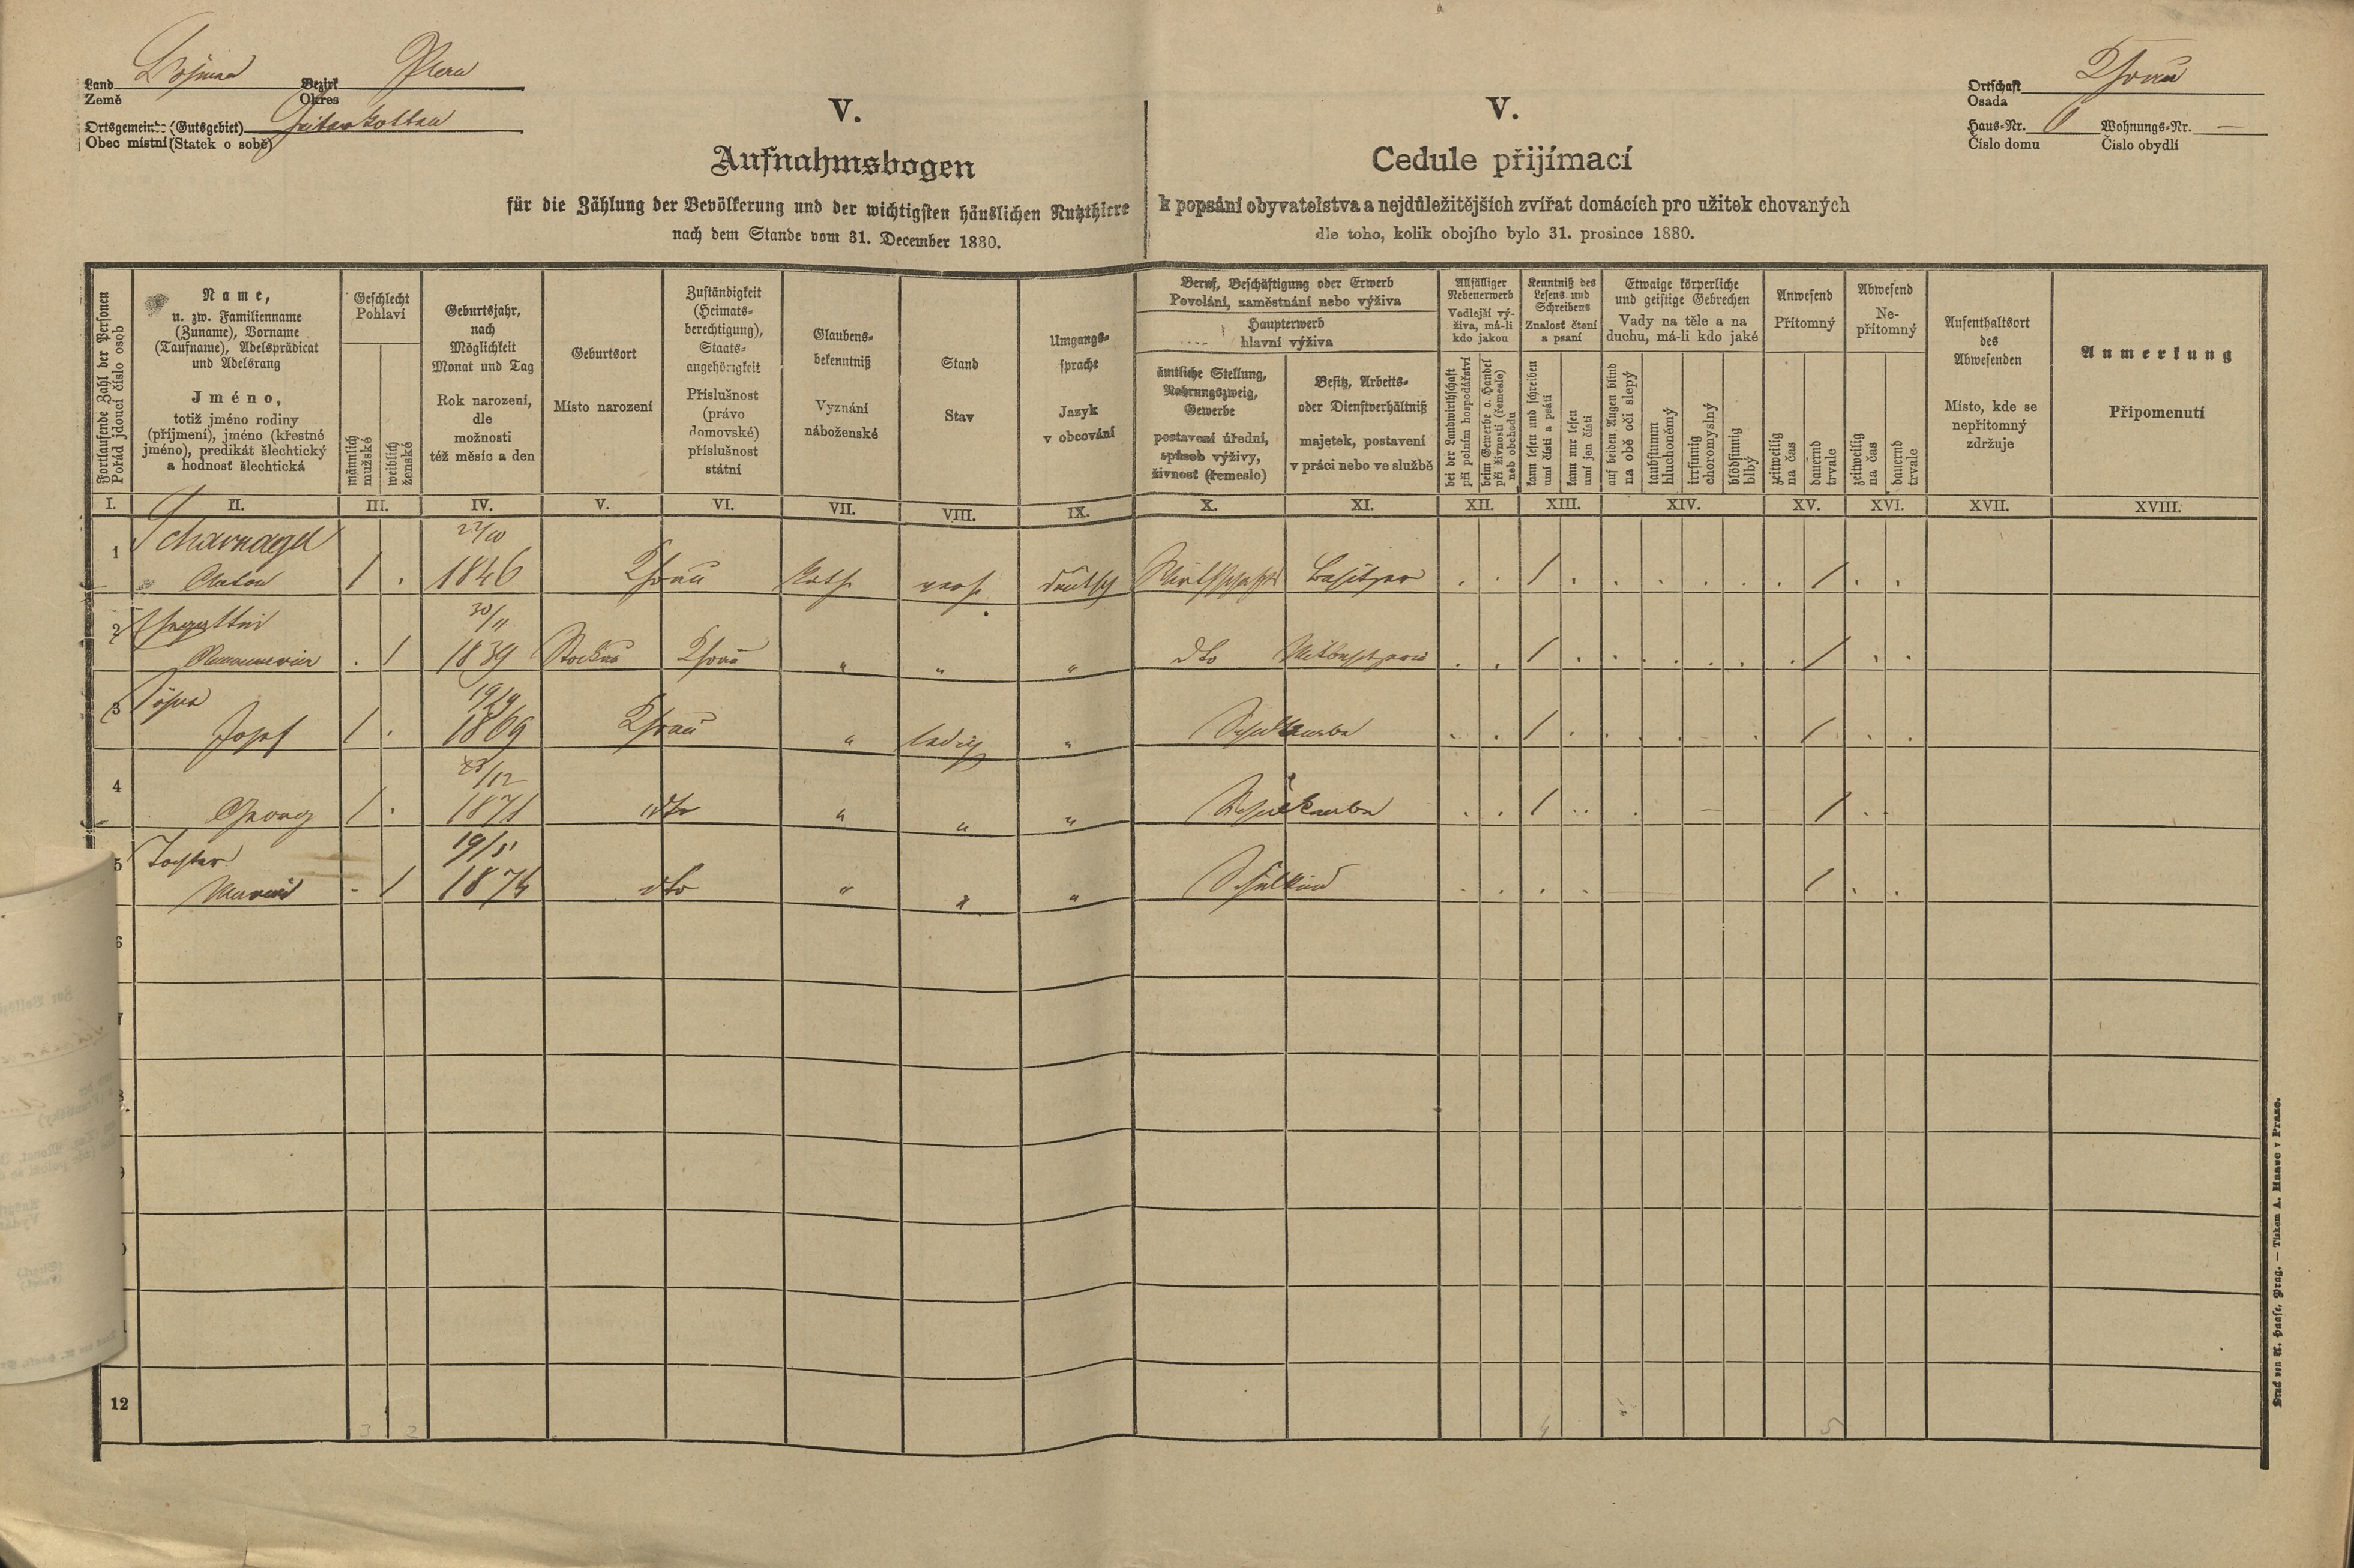 Land Böhmen Bezirk Plan
Země Okres
Ortsgemeinde (Gutsgebiet)
Obec místní (Statek o sobě)
Ortschaft
Osada
Haus-Nr. 6 Wohnungs-Nr. —
Číslo domu Číslo obydlí
V.
Aufnahmsbogen
für die Zählung der Bevölkerung und der wichtigsten häuslichen Nutzthiere
nach dem Stande vom 31. December 1880.
V.
Cedule přijímací
k popsání obyvatelstva a nejdůležitějších zvířat domácích pro užitek chovaných
dle toho, kolik obojího bylo 31. prosince 1880.
Fortlaufende Zahl der Personen
Pořád jdoucí číslo osob
Name,
u. zw. Familienname
(Zuname), Vorname
(Taufname), Adelsprädicat
und Adelsrang
Jméno,
totiž jméno rodiny
(příjmení), jméno (křestné
jméno), predikát šlechtický
a hodnosť šlechtická
Geschlecht
Pohlaví
männlich
mužské
weiblich
ženské
Geburtsjahr,
nach
Möglichkeit
Monat und Tag
Rok narození,
dle
možnosti
též měsíc a den
Geburtsort
Místo narození
Zuständigkeit
(Heimats-
berechtigung),
Staats-
angehörigkeit
Příslušnost
(právo
domovské)
příslušnost
státní
Glaubens-
bekenntniß
Vyznání
náboženské
Stand
Stav
Umgangs-
sprache
Jazyk
v obcování
Beruf, Beschäftigung oder Erwerb
Povolání, zaměstnání nebo výživa
Haupterwerb
hlavní výživa
ämtliche Stellung,
Nahrungszweig,
Gewerbe
postavení úřední,
spůsob výživy,
živnost (řemeslo)
Besitz, Arbeits-
oder Dienstverhältniß
majetek, postavení
v práci nebo ve službě
Allfälliger
Nebenerwerb
Vedlejší vý-
živa, má-li
kdo jakou
bei der Landwirthschaft
při polním hospodářství
beim Gewerbe o. Handel
při živnosti (řemesle)
neb obchodu
Kenntniß des
Lesens und
Schreibens
Znalosť čtení
a psaní
kann lesen und schreiben
umí čísti a psáti
kann nur lesen
umí jen čísti
Etwaige körperliche
und geistige Gebrechen
Vady na těle a na
duchu, má-li kdo jaké
auf beiden Augen blind
na obě oči slepý
taubstumm
hluchoněmý
irrsinnig
choromyslný
blödsinnig
blbý
Anwesend
Přítomný
zeitweilig
na čas
dauernd
trvale
Abwesend
Ne-
přítomný
zeitweilig
na čas
dauernd
trvale
Aufenthaltsort
des
Abwesenden
Místo, kde se
nepřítomný
zdržuje
Anmerkung
Připomenutí
I. II. III. IV. V. VI. VII. VIII. IX. X. XI. XII. XIII. XIV. XV. XVI. XVII. XVIII.
1 Scharnagel 22/10
Anton 1 . 1846 kath verh deutsch Wirtschafts Besitzer . . 1 . . . . . . 1 . .
2 Ehegattin 30/11
. 1 1839 " " " dto Mitbesitzerin . . 1 . . . . . . 1 . .
3 Söhne 19/9
Josef 1 . 1869 " ledig " Schulknabe . . 1 . . . . . . 1 . .
4 12
Georg 1 . 1871 dto " " " Schulknabe . . 1 . . 1 . .
5 Tochter 19/5
1 1874 dto " " " Schulkind . . . . 1 . .
12
3 2 4 5
Druck von A. Haase, Prag. — Tiskem A. Haase v Praze.